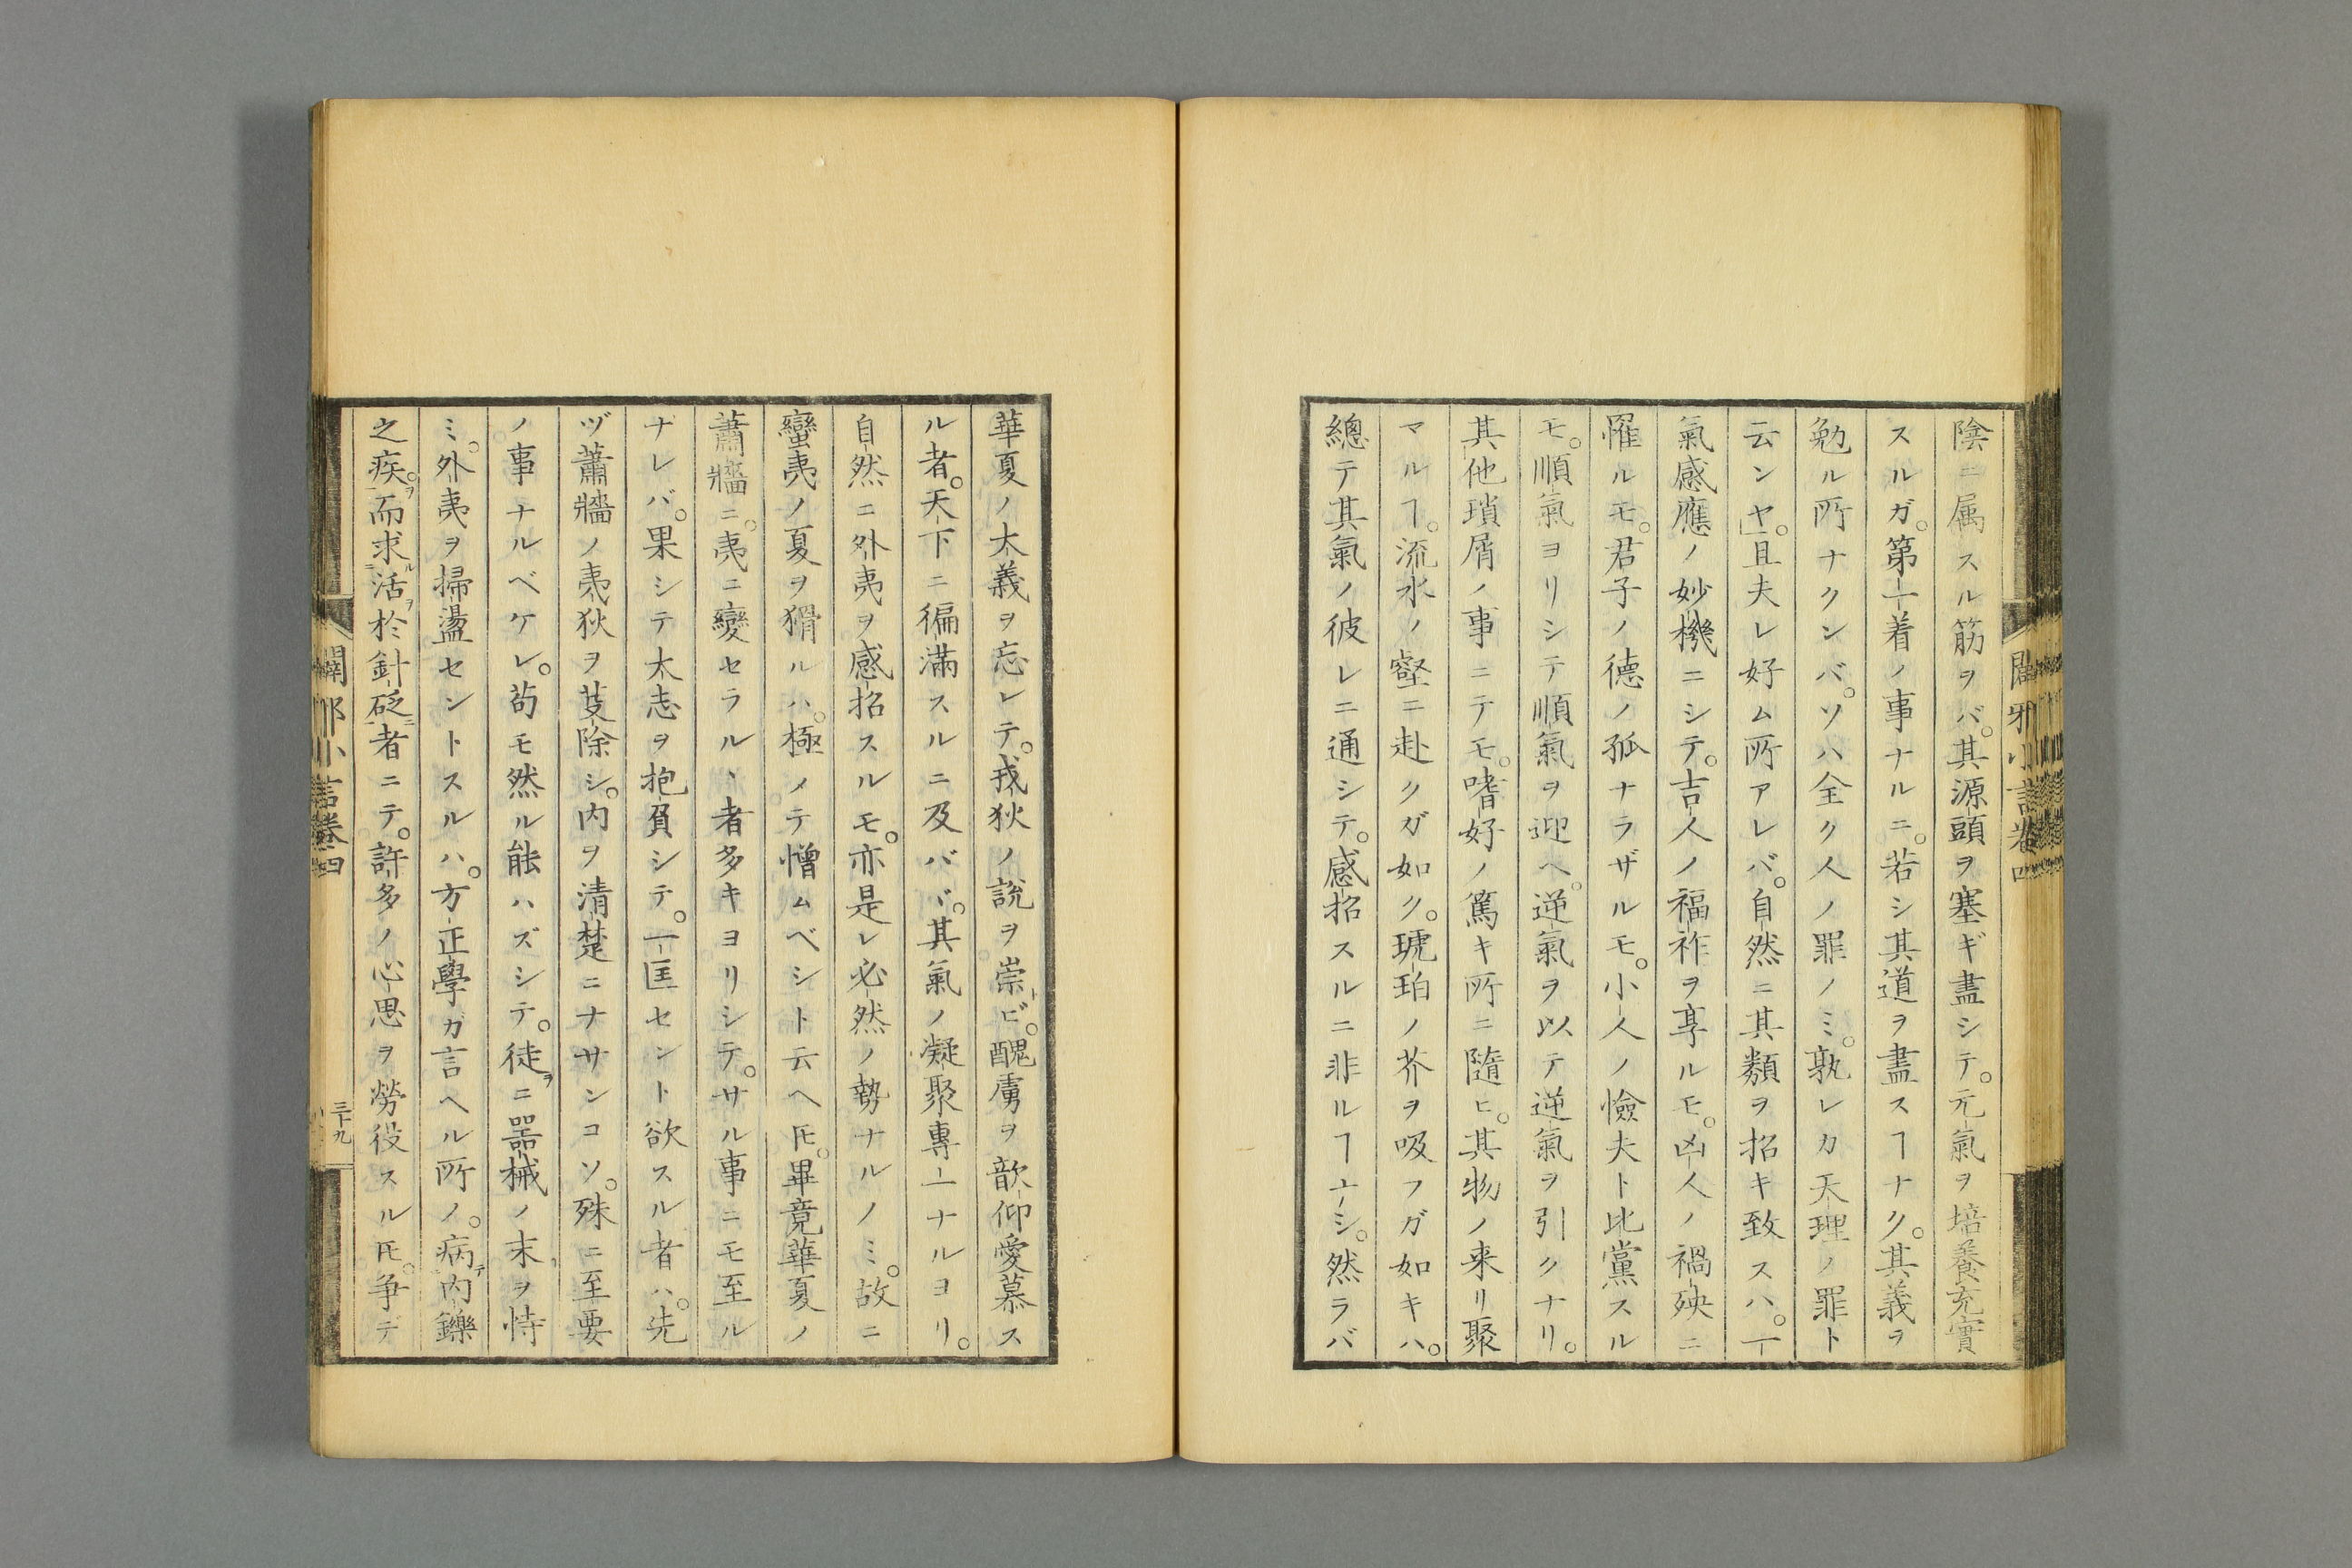 陰ニ属スル筋ヲバ。其源頭ヲ塞ギ盡シテ。元氣ヲ培養充實
スルガ。第一着ノ事ナルニ。若シ其道ヲ盡スヿナク。其義ヲ
勉ル所ナクンバ。ソハ全ク人ノ罪ノミ。孰レカ天理ノ罪ト
云ンヤ」。且夫レ好ム所アレバ。自然ニ其類ヲ招キ致スハ。一
氣感應ノ妙機ニシテ。吉人ノ福祚ヲ享ルモ。凶人ノ禍殃ニ
罹ルモ。君子ノ德ノ孤ナラザルモ。小人ノ憸夫ト比黨スル
モ。順氣ヨリシテ順氣ヲ迎へ。逆氣ヲ以テ逆氣ヲ引クナリ。
其他瑣屑ノ事ニテモ。嗜好ノ篤キ所ニ隨ヒ。其物ノ来リ聚
マルヿ。流水ノ壑ニ赴クガ如ク。琥珀ノ芥ヲ吸フガ如キハ。
總テ其氣ノ彼レニ通シテ。感招スルニ非ルヿナシ。然ラバ
華夏ノ大義ヲ忘レテ。戎狄ノ説ヲ崇ビ。醜虜ヲ歆仰愛慕ス
ル者。天下ニ徧滿スルニ及バヾ。其氣ノ凝聚專一ナルヨリ。
自然ニ外夷ヲ感招スルモ。亦是レ必然ノ勢ナルノミ。故ニ
蠻夷ノ夏ヲ猾ルハ。極メテ憎ムベシト云ヘ𪜈。畢竟華夏ノ
蕭牆ニ。夷ニ變セラルヽ者多キヨリシテ。サル事ニモ至ル
ナレバ。果シテ大志ヲ抱負シテ。一匡セント欲スル者ハ。先
ヅ蕭牆ノ夷狄ヲ芟除シ。内ヲ清楚ニナサンコソ。殊ニ至要
ノ事ナルベケレ。苟モ然ル能ハズシテ。徒ニ器械ノ末ヲ恃
ミ。外夷ヲ掃盪セントスルハ。方正學ガ言ヘル所ノ。病テ内鑠
之疾ヲ。而求ルニ活ヲ於針砭ニ者ニテ。許多ノ心思ヲ勞役スル𪜈。争デ
闢邪小言卷四
三十九